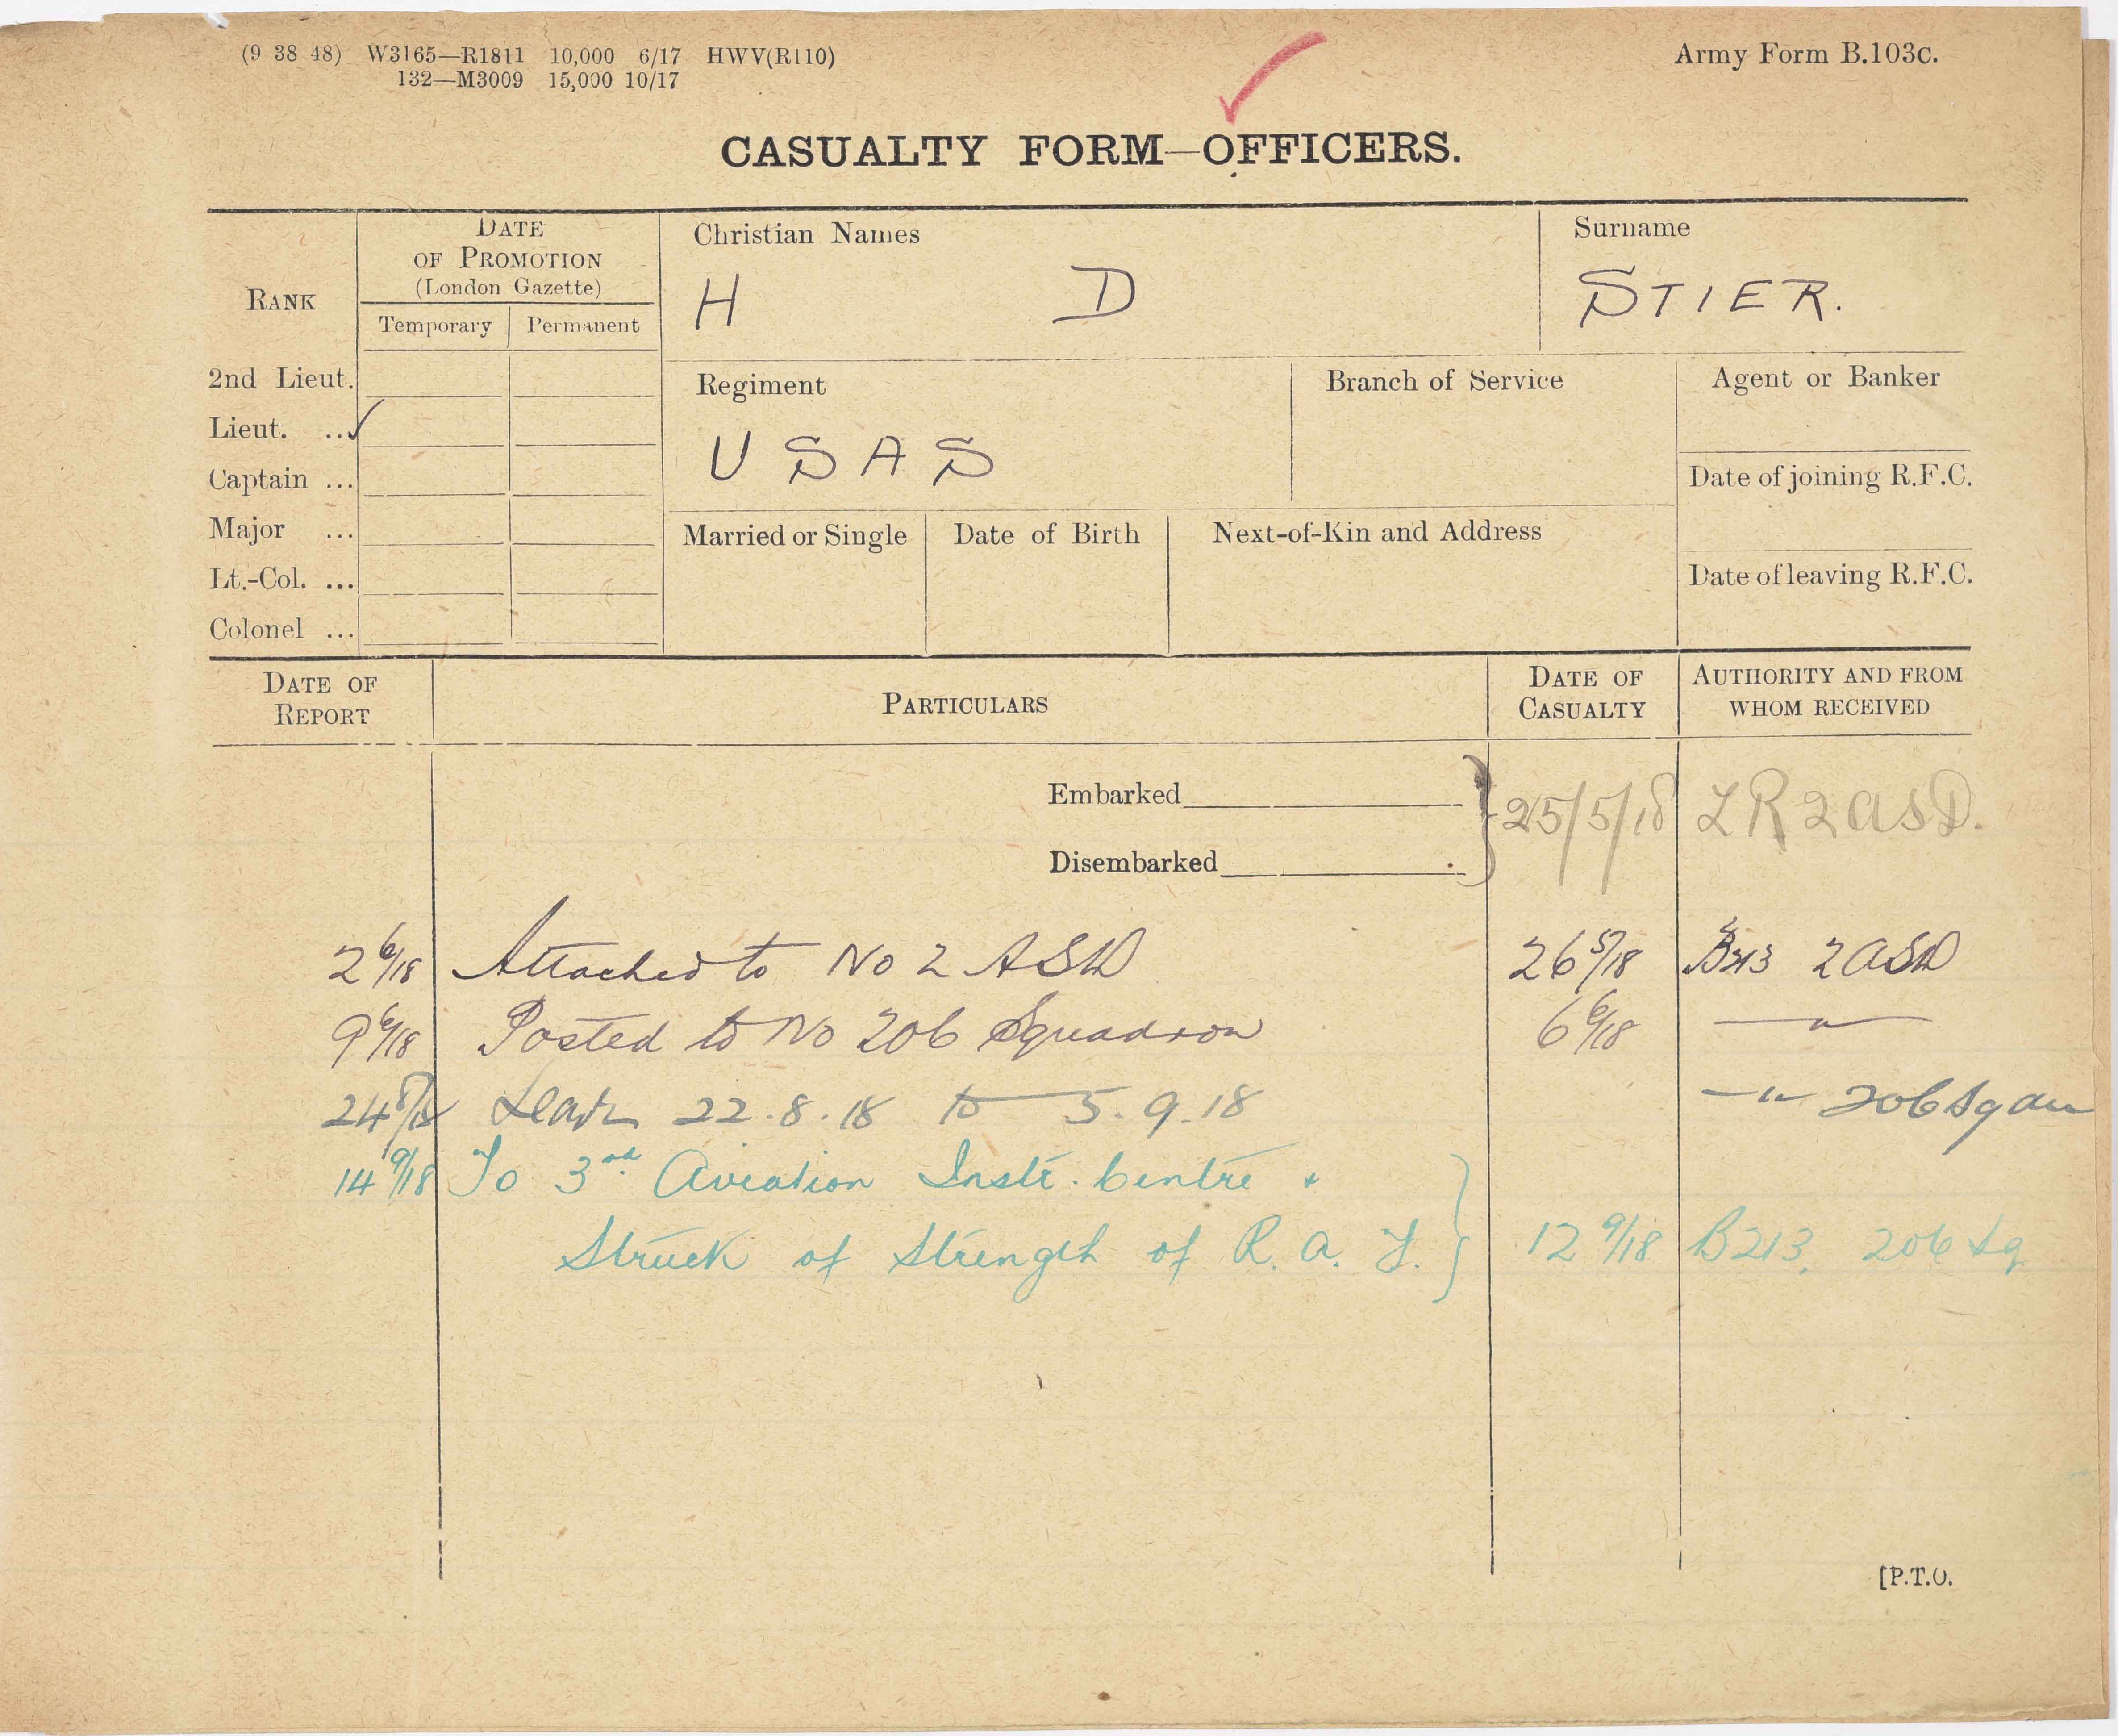 (9 38 48) W3165—R1811 10,000 6/17 HWV(R110)
132—M3009 15,000 10/17
Army Form B.103c.
CASUALTY FORM—OFFICERS.
RANK
DATE OF PROMOTION (London Gazette)
Temporary
Permanent
Christian Names
H D
Surname
STIER.
2nd Lieut.
Lieut. ... ✓
Captain ...
Major ...
Lt.-Col. ...
Colonel ...
Regiment
U S A S
Branch of Service
Agent or Banker
Date of joining R.F.C.
Date of leaving R.F.C.
Married or Single
Date of Birth
Next-of-Kin and Address
DATE OF REPORT
PARTICULARS
DATE OF CASUALTY
AUTHORITY AND FROM WHOM RECEIVED
Embarked
Disembarked
25/5/18 LR 2 ASD.
2 6/18 Attached to No 2 ASD 26 5/18 B213 2 ASD
9 6/18 Posted to No 206 Squadron 6 6/18 — " —
24 8/18 Leave 22.8.18 to 5.9.18 — " — 206 Sqdn
14 9/18 To 3rd Aviation Instr. Centre +
Struck of Strength of R. A. F. } 12 9/18 B213. 206 Sq
[P.T.O.